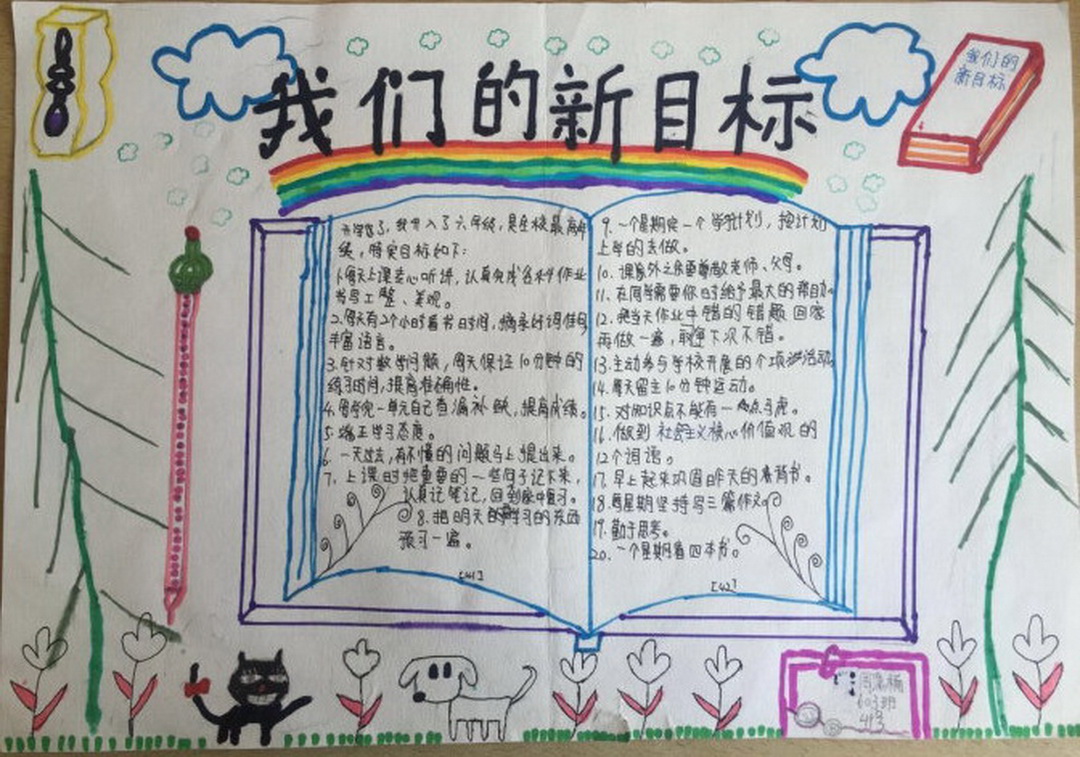 我们的新目标
我们的
新目标
开学了，我升入了六年级，是全校最高年
级，特定目标如下：
1.每天上课专心听讲，认真完成各科作业
书写工整、美观。
2.每天有2个小时看书时间，摘录好词佳句
丰富语言。
3.针对数学问题，每天保证10分钟的
练习时间，提高准确性。
4.每学完一单元自己查漏补缺，提高成绩。
5.端正学习态度。
6.一天过去，有不懂的问题马上提出来。
7.上课时把重要的一些句子记下来，
认真记笔记，回到家中复习。
8.把明天的要学习的东西
预习一遍。
[41]
9.一个星期定一个学习计划，按计划
上学的去做。
10.课象外之余更尊敬老师、父母。
11.在同学需要你时给予最大的帮助。
12.把当天作业中错的错题回家
再做一遍，取争下次不错。
13.主动参与学校开展的个项活动。
14.每天留主10分钟运动。
15.对知识点不能有一点马虎。
16.做到社会主义核心价值观的
12个词语。
17.早上起来巩固昨天的背书。
18.每星期坚持写三篇作文。
19.勤于思考。
20.一个星期看四本书。
[42]
603班
41号